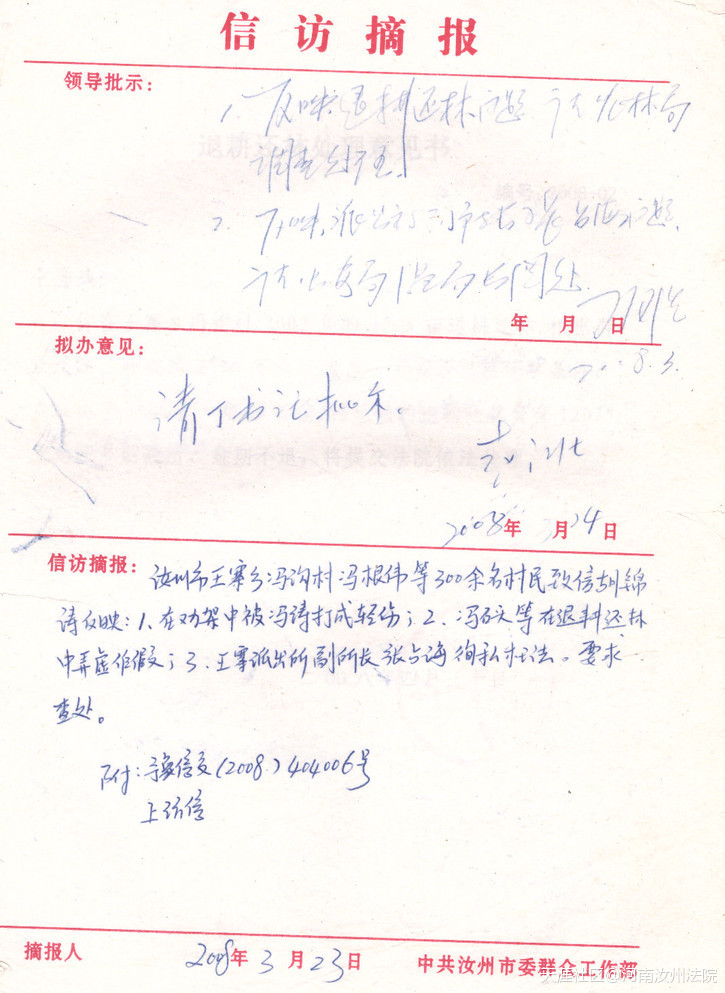 信访摘报
领导批示：
1. 反映退耕还林问题，请农林局
调查处理。
2. 反映派出所副所长张占海问题，
请公安局
年 月 日
拟办意见：
请丁书记批示。
2008年 3月24日
信访摘报：汝州市王寨乡冯沟村冯根伟等300余名村民致信胡锦
涛反映：1、在劝架中被冯涛打成轻伤；2、冯石头等在退耕还林
中弄虚作假；3、王寨派出所副所长张占海徇私枉法。要求
查处。
附：豫信交(2008)404006号
上访信
摘报人 2008年 3 月 23 日 中共汝州市委群众工作部
天涯社区@河南汝州法院